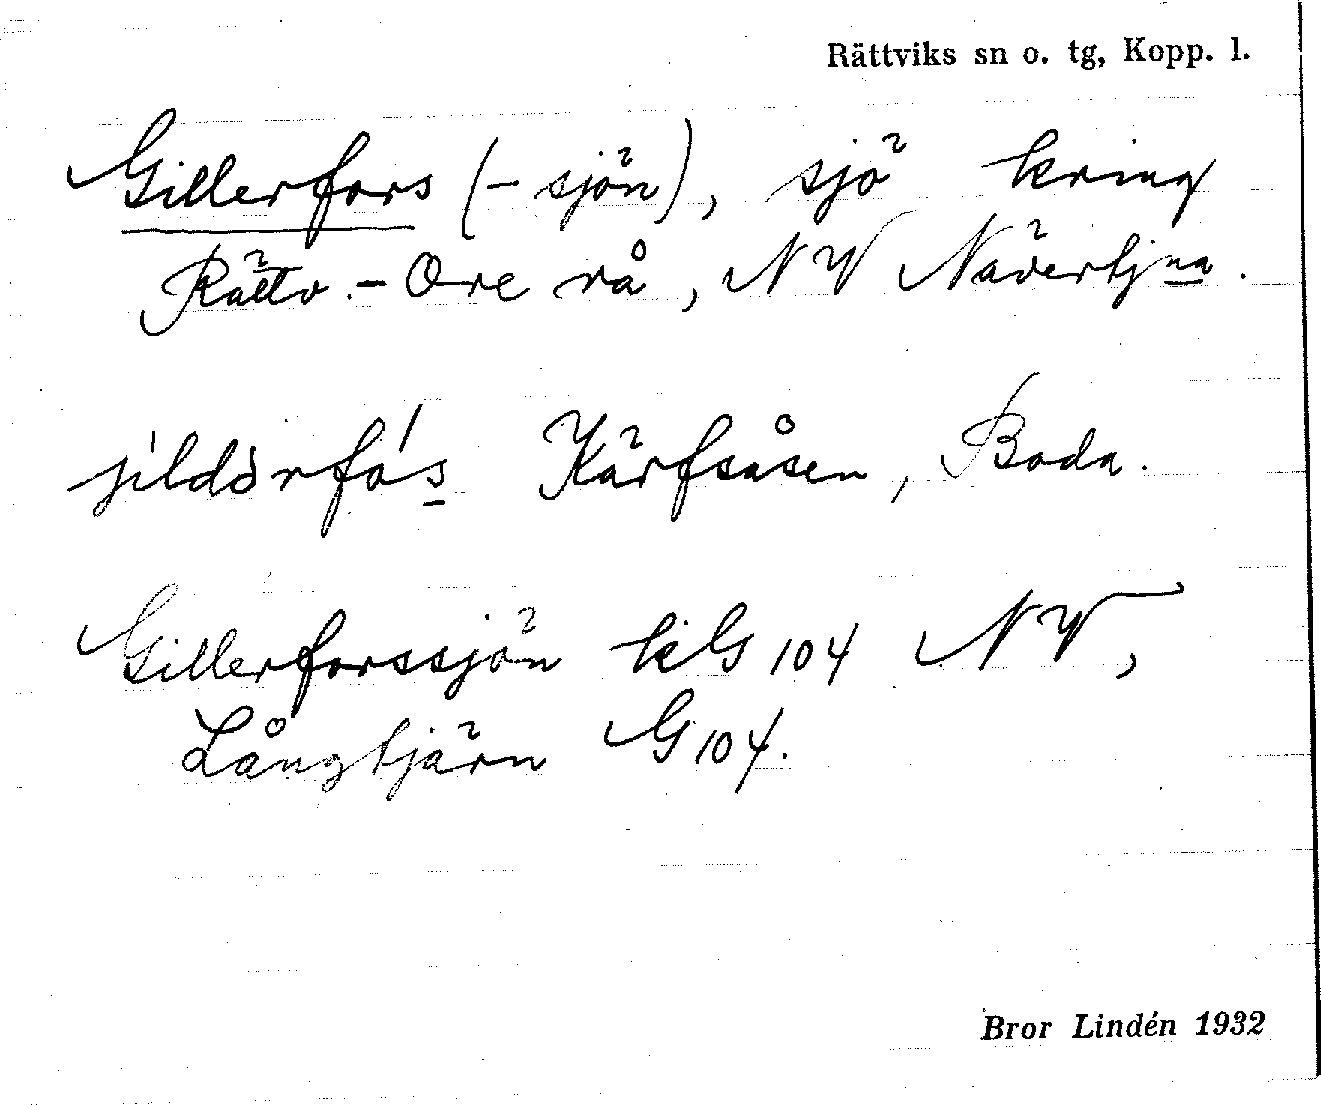 Rättviks sn o. tg, Kopp. l.
Gillerfors (-sjön), sjö kring
Rättv.- Ore rå, NV Nävertjna.
Kärfsåsen, Boda.
Gillerforssjön kG 104 NV,
Långtjärn G 104.
Bror Lindén 1932